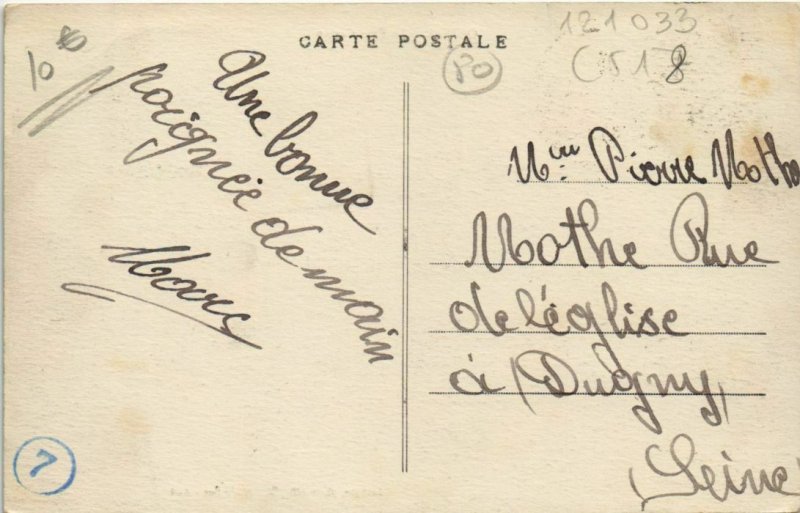 CARTE POSTALE
121033
C518
PO
10
Une bonne
poignée de main
Marc
Mr Pierre Mothe
Mothe Rue
de l'église
à Dugny
(Seine)
7